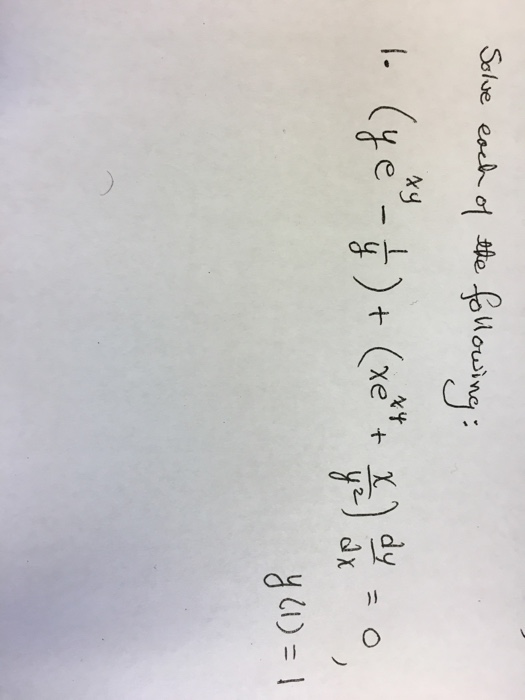 Solve each of the following:
1. (ye^{xy} - \frac{1}{y}) + (xe^{xy} + \frac{x}{y^2}) \frac{dy}{dx} = 0,
y(1) = 1